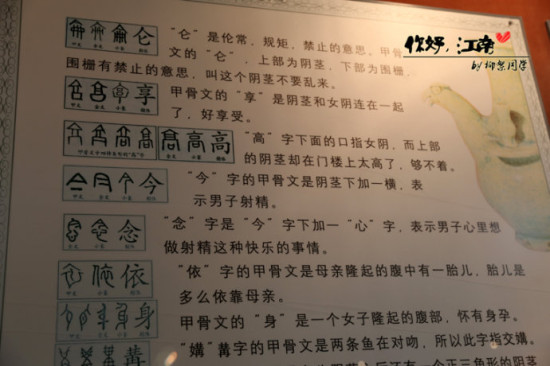 你好,江南
by 柳絮同学
“仑”是伦常，规矩，禁止的意思。甲骨
文的“仑”，上部为阴茎，下部为围栅，
围栅有禁止的意思，叫这个阴茎不要乱来。
甲骨文的“享”是阴茎和女阴连在一起
了，好享受。
“高”字下面的口指女阴，而上部
的阴茎却在门楼上太高了，够不着。
“今”字的甲骨文是阴茎下加一横，表
示男子射精。
“念”字是“今”字下加一“心”字，表示男子心里想
做射精这种快乐的事情。
“依”字的甲骨文是母亲隆起的腹中有一胎儿，胎儿是
多么依靠母亲。
甲骨文的“身”是一个女子隆起的腹部，怀有身孕。
“媾”冓字的甲骨文是两条鱼在对吻，所以此字指交媾。
后还有一个正三角形的阴茎
仑
享
高
今
念
依
身
冓